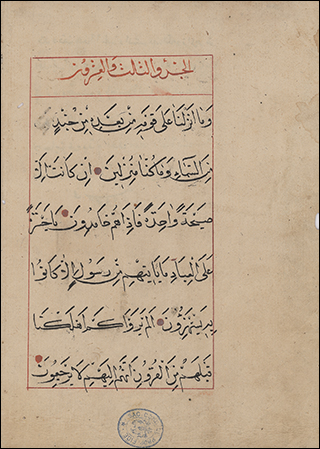 الجزء والثلث والعشرون
وما أنزلنا على قومه من بعده من جند
من السماء وما كنا منزلين إن كانت إلا
صيحة واحدة فإذا هم خامدون يا حسرة
على العباد ما يأتيهم من رسول إلا كانوا
به يستهزؤن ألم يروا كم أهلكنا
قبلهم من القرون أنهم إليهم لا يرجعون